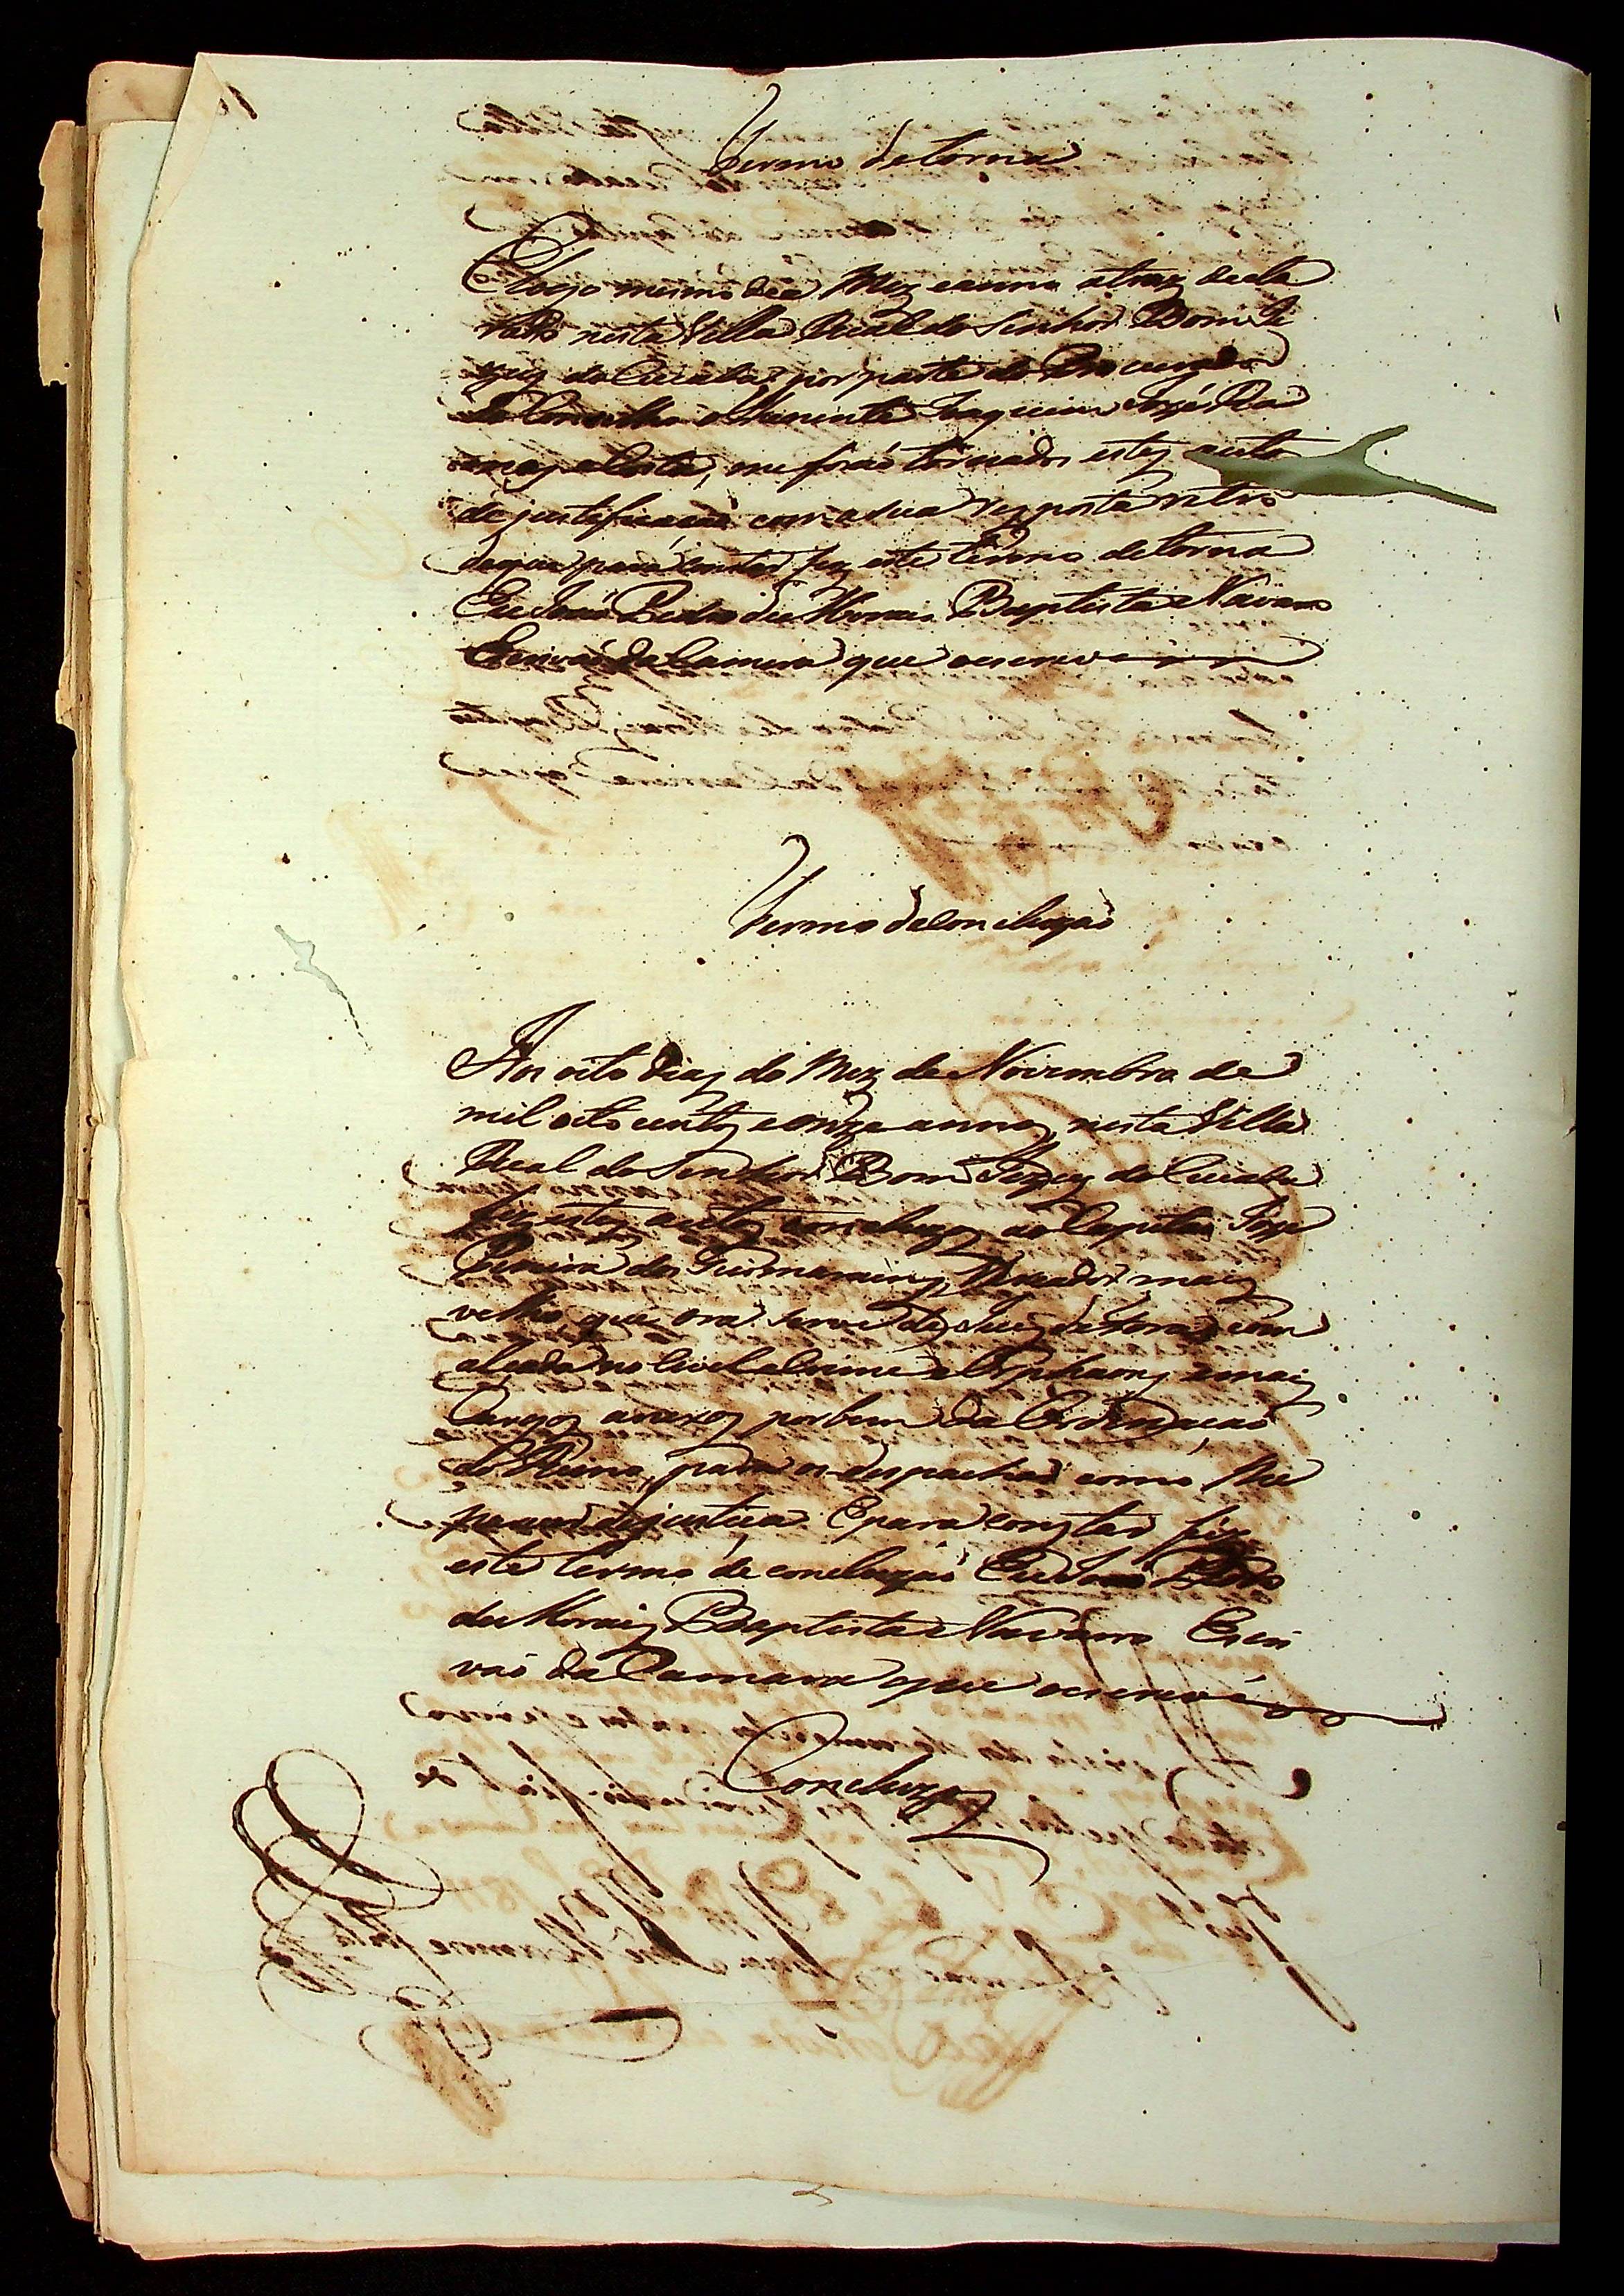 Termo de torna
E logo mesmo dia Mez e anno atraz decla
rado nesta Villa Real do Senhor Bom Je
zus do Cuiaba por parte do Procurador
do Conselho o Thenente Joaquim José Ra
mos e Costa, me forão tornados estes autos
de justificação com a sua resposta retro
de que para constar fez este termo de torna
Eu João Pedro de Morais Baptista Navarro
Escrivão da Camera que o escrevi
Termo de Concluzão
Aos oito dias do Mez de Novembro de
mil oito centos e onze annos, nesta Villa
Real do Senhor Bom Jezus do Cuiaba
fiz estes autos concluzos ao Capitão Joze
Pereira dos Guimarains Vereador mais
velho, que ora serve de Juiz de Fora com
alçada no Civel e Crime e Orphaons e mais
Cargos anexos por bem da Ordenação
do Reino, para os despachar como lhe
parecer de justiça. E para constar fiz
este termo de concluzão Eu João Pedro
de Morais Baptista Navarro Escri
vão da Camara que o escrevi
Concluzos